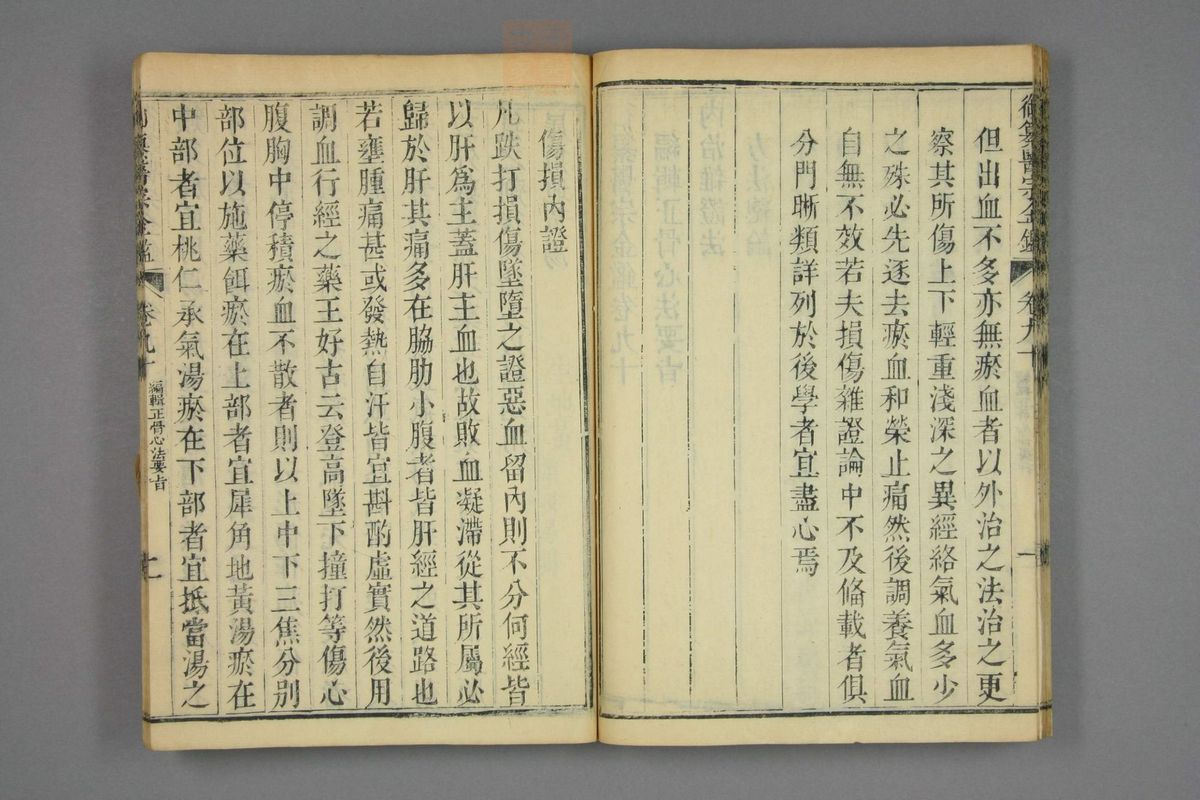 御纂醫宗金鑑
卷九十
一
但出血不多亦無瘀血者以外治之法治之更
察其所傷上下輕重淺深之異經絡氣血多少
之殊必先逐去瘀血和榮止痛然後調養氣血
自無不效若夫損傷雜證論中不及俻載者俱
分門晰類詳列於後學者宜盡心焉
傷損內證
凡跌打損傷墜墮之證惡血留內則不分何經皆
以肝爲主蓋肝主血也故敗血凝滯從其所屬必
歸於肝其痛多在脇肋小腹者皆肝經之道路也
若壅腫痛甚或發熱自汗皆宜斟酌虛實然後用
調血行經之藥王好古云登高墜下撞打等傷心
腹胸中停積瘀血不散者則以上中下三焦分別
部位以施藥餌瘀在上部者宜犀角地黃湯瘀在
中部者宜桃仁承氣湯瘀在下部者宜抵當湯之
卷九十
編輯正骨心法要旨
二